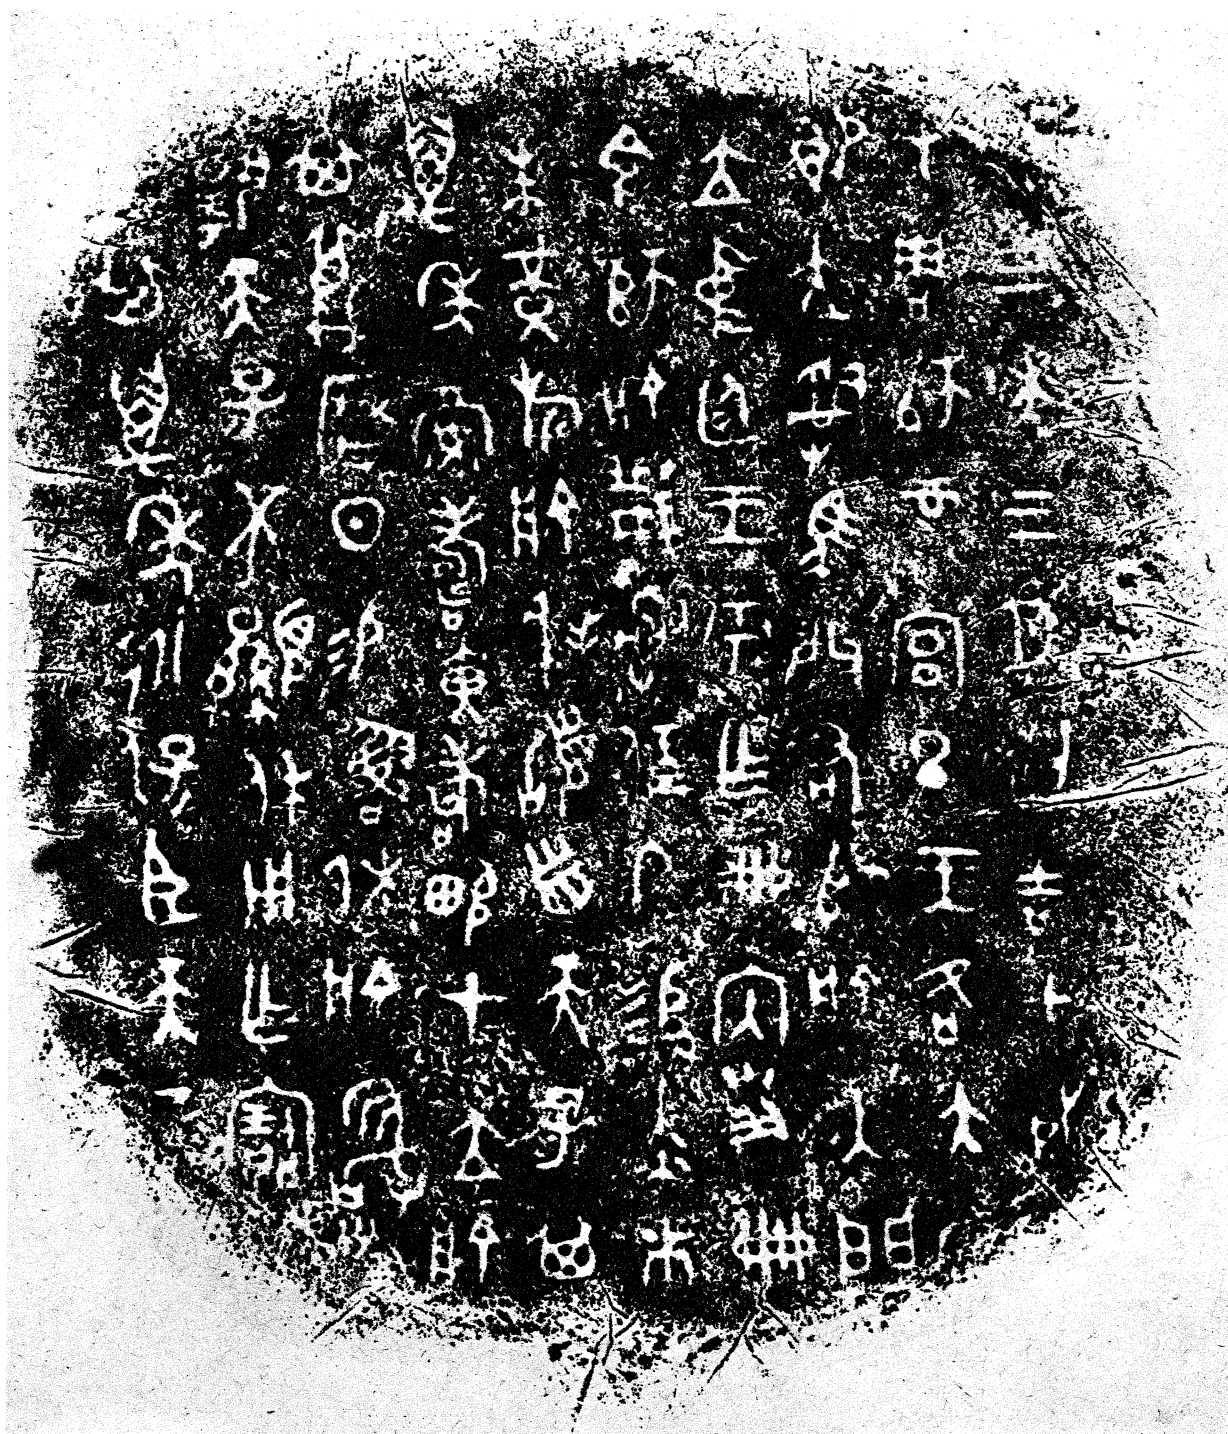 隹三年三月初吉甲戌王
才周師彔宮旦王各大室
即立𤔲馬共右師艅入門
立中廷王乎乍冊內史冊
令師艅𤔲人易赤巿
朱黃旂艅拜𩒨首天子其
萬年眉壽黃耇畯才立艅
其蔑曆日易魯休艅敢對
揚天子不顯休用乍寶
其萬年永保臣天子